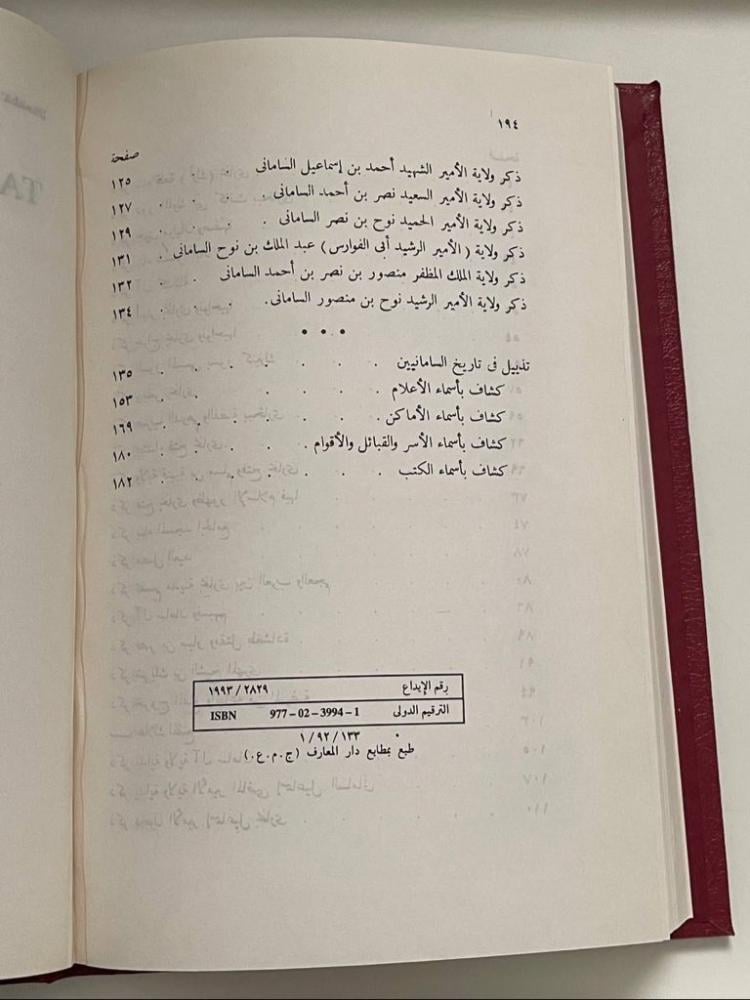 ١٩٤
صفحة
ذكر ولاية الأمير الشهيد أحمد بن إسماعيل السامانى . . ١٢٥
ذكر ولاية الأمير السعيد نصر بن أحمد السامانى . . . ١٢٧
ذكر ولاية الأمير الحميد نوح بن نصر السامانى . . . ١٢٩
ذكر ولاية ( الأمير الرشيد أبى الفوارس ) عبد الملك بن نوح السامانى ١٣١
ذكر ولاية الملك المظفر منصور بن نصر بن أحمد السامانى . . ١٣٢
ذكر ولاية الأمير الرشيد نوح بن منصور السامانى . . . ١٣٤
• • •
تذييل فى تاريخ السامانيين . . . . . . ١٣٥
كشاف بأسماء الأعلام . . . . . . ١٥٣
كشاف بأسماء الأماكن . . . . . . ١٦٩
كشاف بأسماء الأسر والقبائل والأقوام . . . . ١٨٠
كشاف بأسماء الكتب . . . . . . ١٨٢
رقم الإيداع ١٩٩٣/٢٨٢٩
الترقيم الدولى ISBN 977-02-3994-1
١/٩٢/١٣٣
طبع بمطابع دار المعارف (ج.م.ع.)
TA